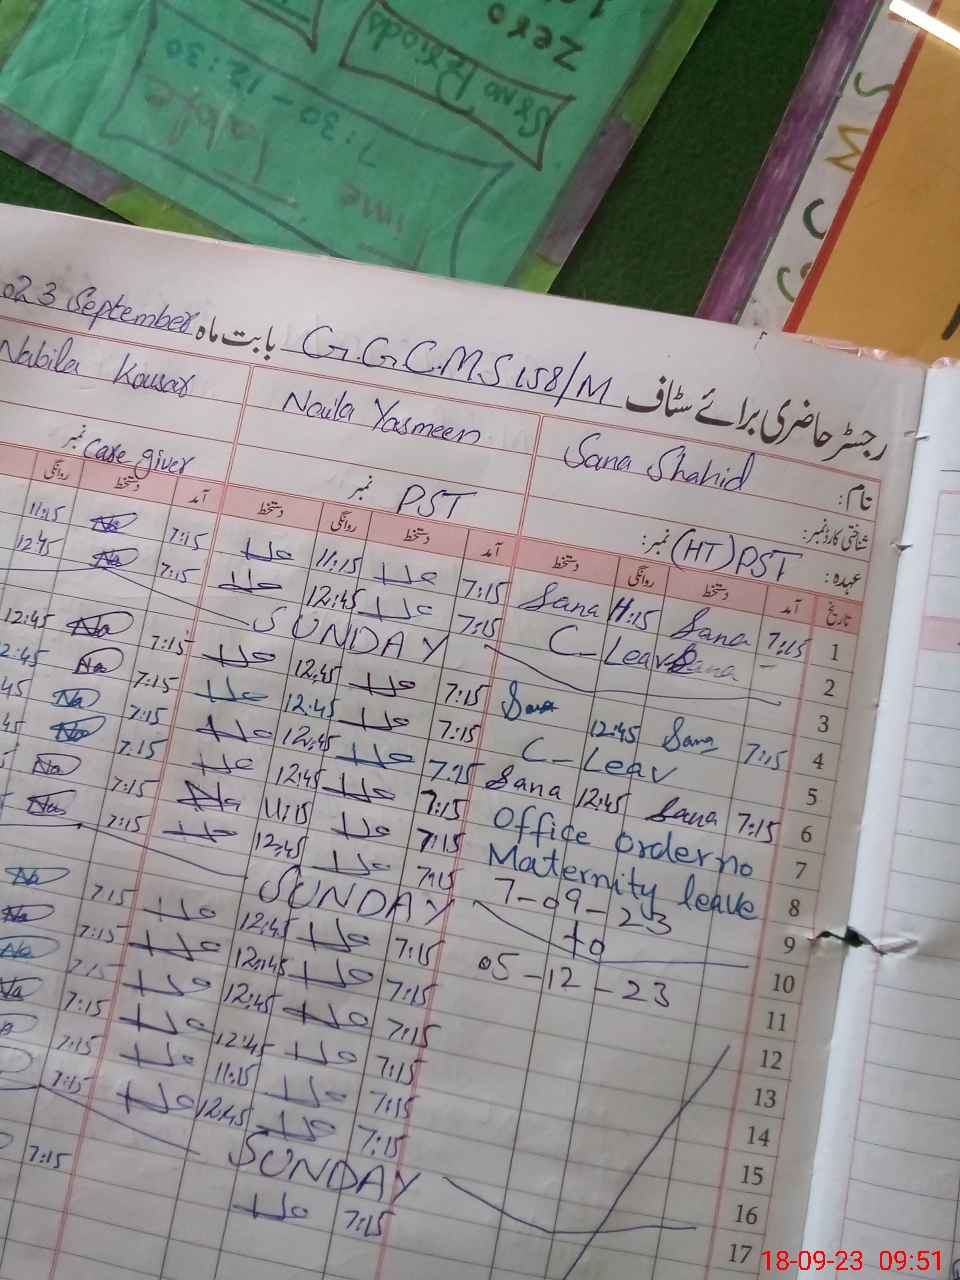 Zero
Sr.no Periods
7:30 - 12:30
Time Table
رجسٹر حاضری برائے سٹاف G.G.C.M.S 158/M بابت ماہ September 023
نام: Sana Shahid Naila Yasmeen Nabila Kousar
شناختی کارڈ نمبر:
عہدہ: (HT) PST نمبر: PST نمبر care giver نمبر
تاریخ آمد دستخط روانگی دستخط آمد دستخط روانگی دستخط آمد دستخط روانگی
1 7:15 Sana 11:15 Sana 7:15 11:15 7:15 Na 11:15
2 C-Leave Sana 7:15 12:45 7:15 Na 12:45
3 SUNDAY
4 7:15 Sana 12:45 Sana 7:15 12:45 7:15 Na 12:45
5 C-Leav 7:15 12:45 7:15 Na 2:45
6 7:15 Sana 12:45 Sana 7:15 12:45 7:15 Na 45
7 Office order no 7:15 12:45 7:15 Na 45
8 Maternity leave 7:15 11:15 Na 7:15 Na
9 7-09-23 7:15 12:45 7:15 Na
10 to SUNDAY
11 05-12-23 7:15 12:45 7:15 Na
12 7:15 12:45 7:15 Na
13 7:15 12:45 7:15 Na
14 7:15 12:45 7:15 Na
15 7:15 11:15 7:15
16 7:15 12:45 7:15
17 SUNDAY
7:15 7:15
18-09-23 09:51